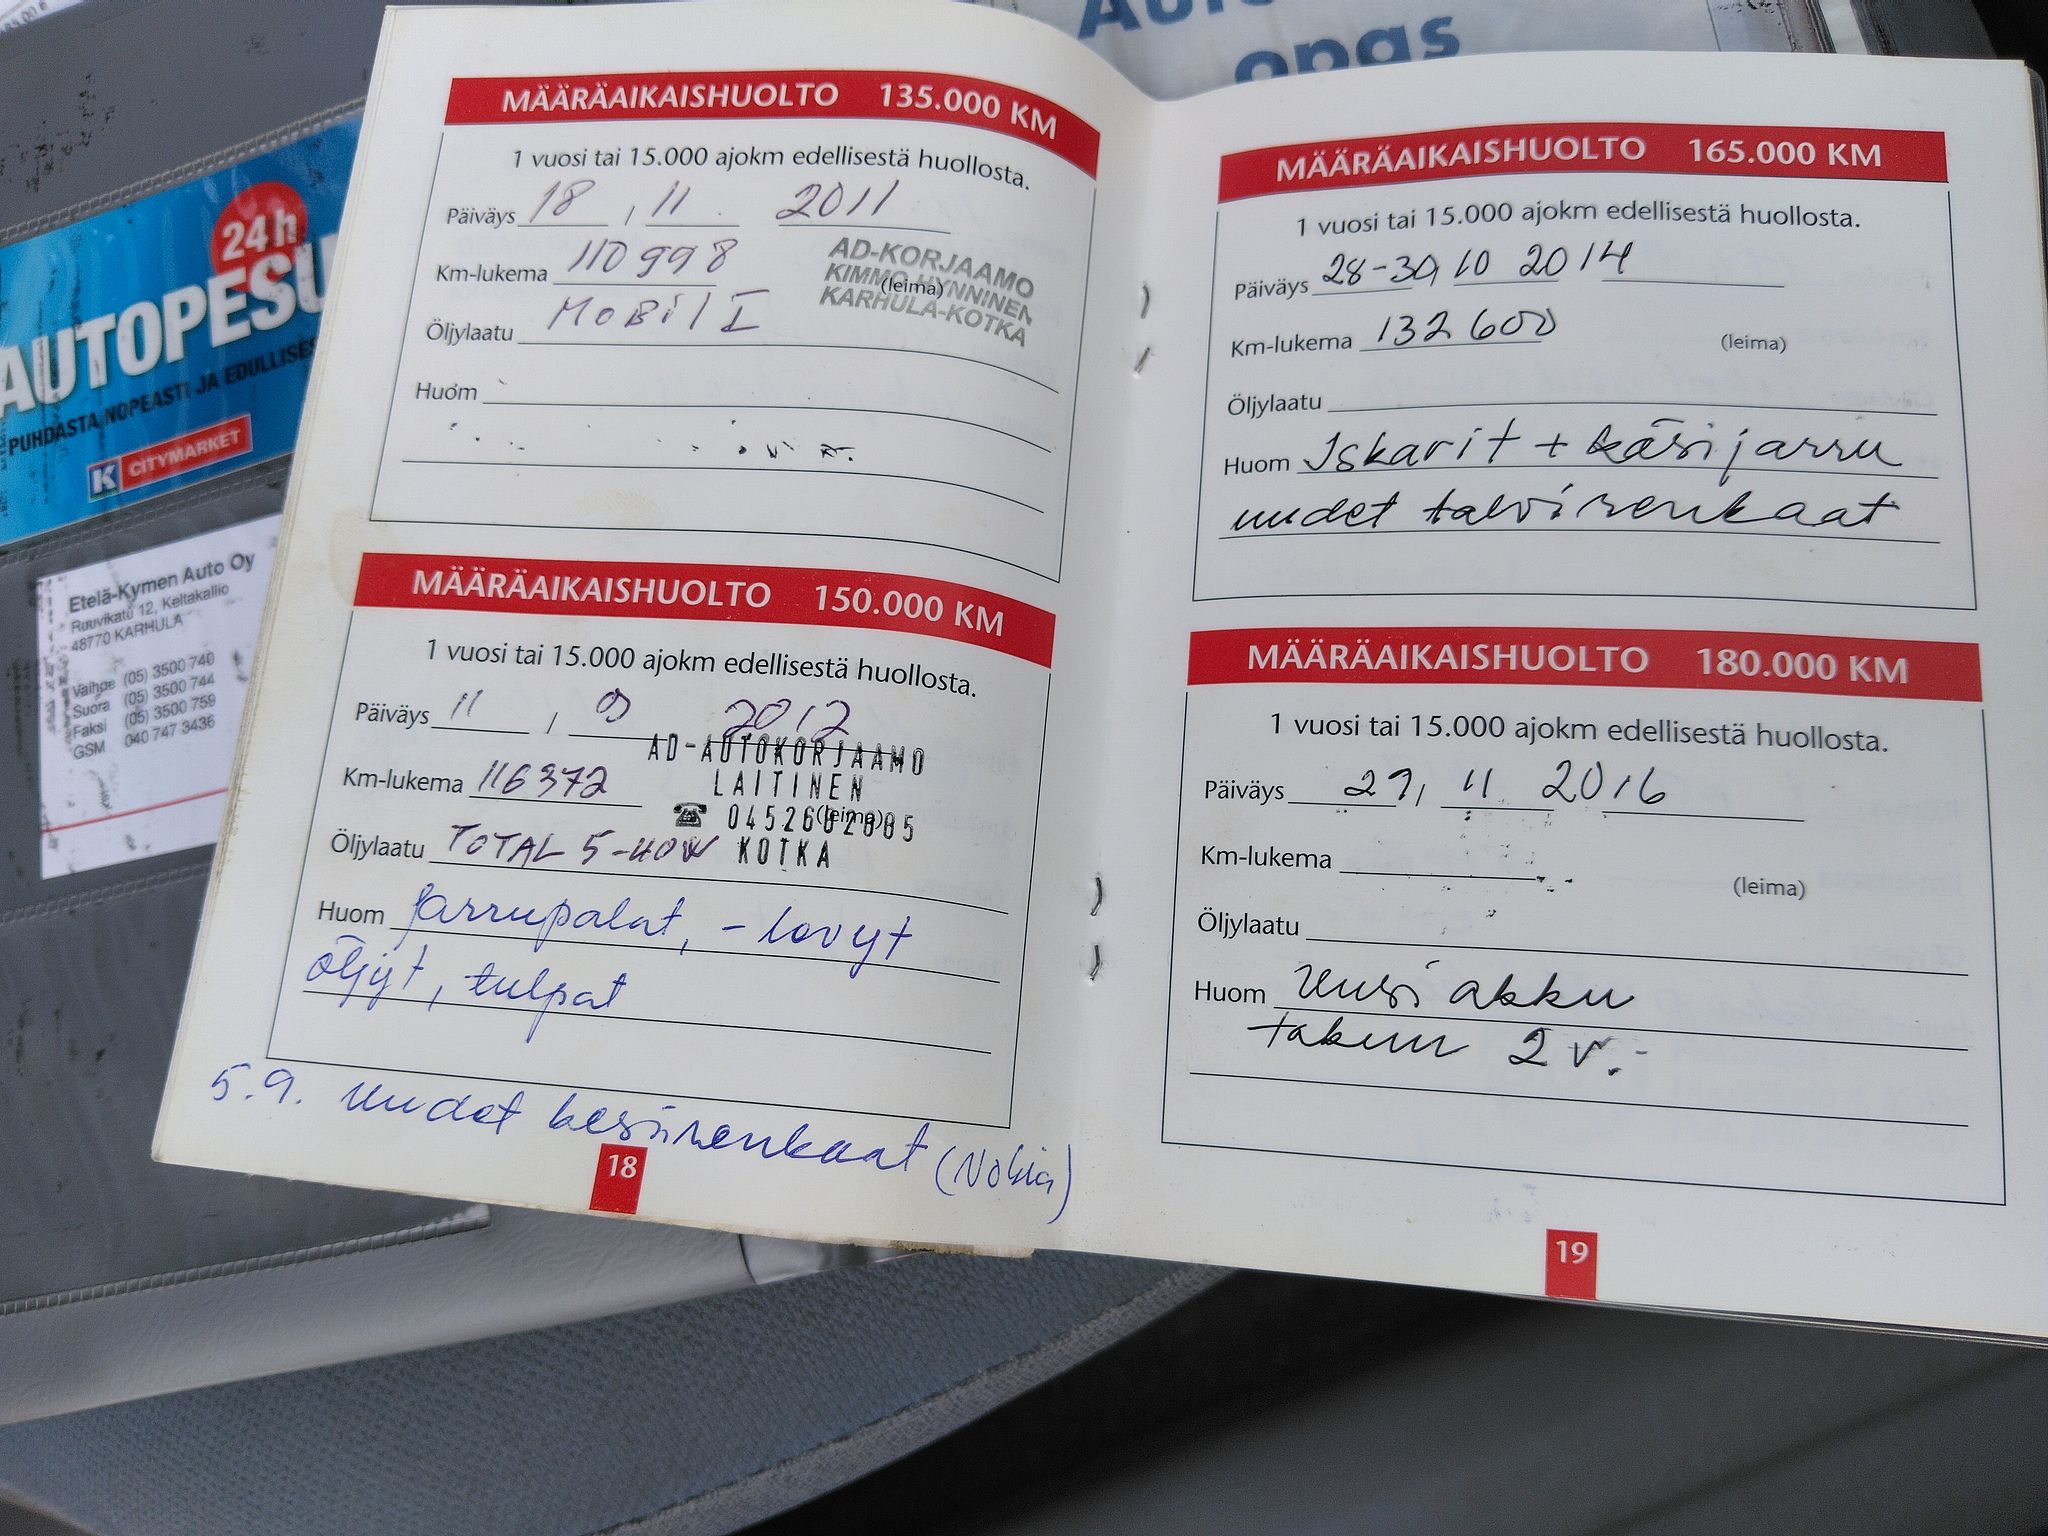 Auto
opas
24h
AUTOPESU
PUHDASTA NOPEASTI JA EDULLISES
K CITYMARKET
Etelä-Kymen Auto Oy
Ruuvikatu 12, Keltakallio
48770 KARHULA
Vaihde (05) 3500 740
Suora (05) 3500 744
Faksi (05) 3500 759
GSM 040 747 3436
MÄÄRÄAIKAISHUOLTO 135.000 KM
1 vuosi tai 15.000 ajokm edellisestä huollosta.
Päiväys 18 / 11 2011
Km-lukema 110998
AD-KORJAAMO
KIMMO HYNNINEN
KARHULA-KOTKA
(leima)
Öljylaatu MOBil I
Huom
MÄÄRÄAIKAISHUOLTO 150.000 KM
1 vuosi tai 15.000 ajokm edellisestä huollosta.
Päiväys 11 / 9 2012
AD-AUTOKORJAAMO
LAITINEN
KOTKA
Km-lukema 116372
(leima)
Öljylaatu TOTAL 5-40W
Huom Jarrupalat, - levyt
öljyt, tulpat
5.9. Uudet kesärenkaat (Nokia)
18
MÄÄRÄAIKAISHUOLTO 165.000 KM
1 vuosi tai 15.000 ajokm edellisestä huollosta.
Päiväys 28-30, 10 2014
Km-lukema 132600
(leima)
Öljylaatu
Huom Iskarit + käsijarru
uudet talvirenkaat
MÄÄRÄAIKAISHUOLTO 180.000 KM
1 vuosi tai 15.000 ajokm edellisestä huollosta.
Päiväys 29, 11 2016
Km-lukema
(leima)
Öljylaatu
Huom Uusi akku
takuu 2 v.
19